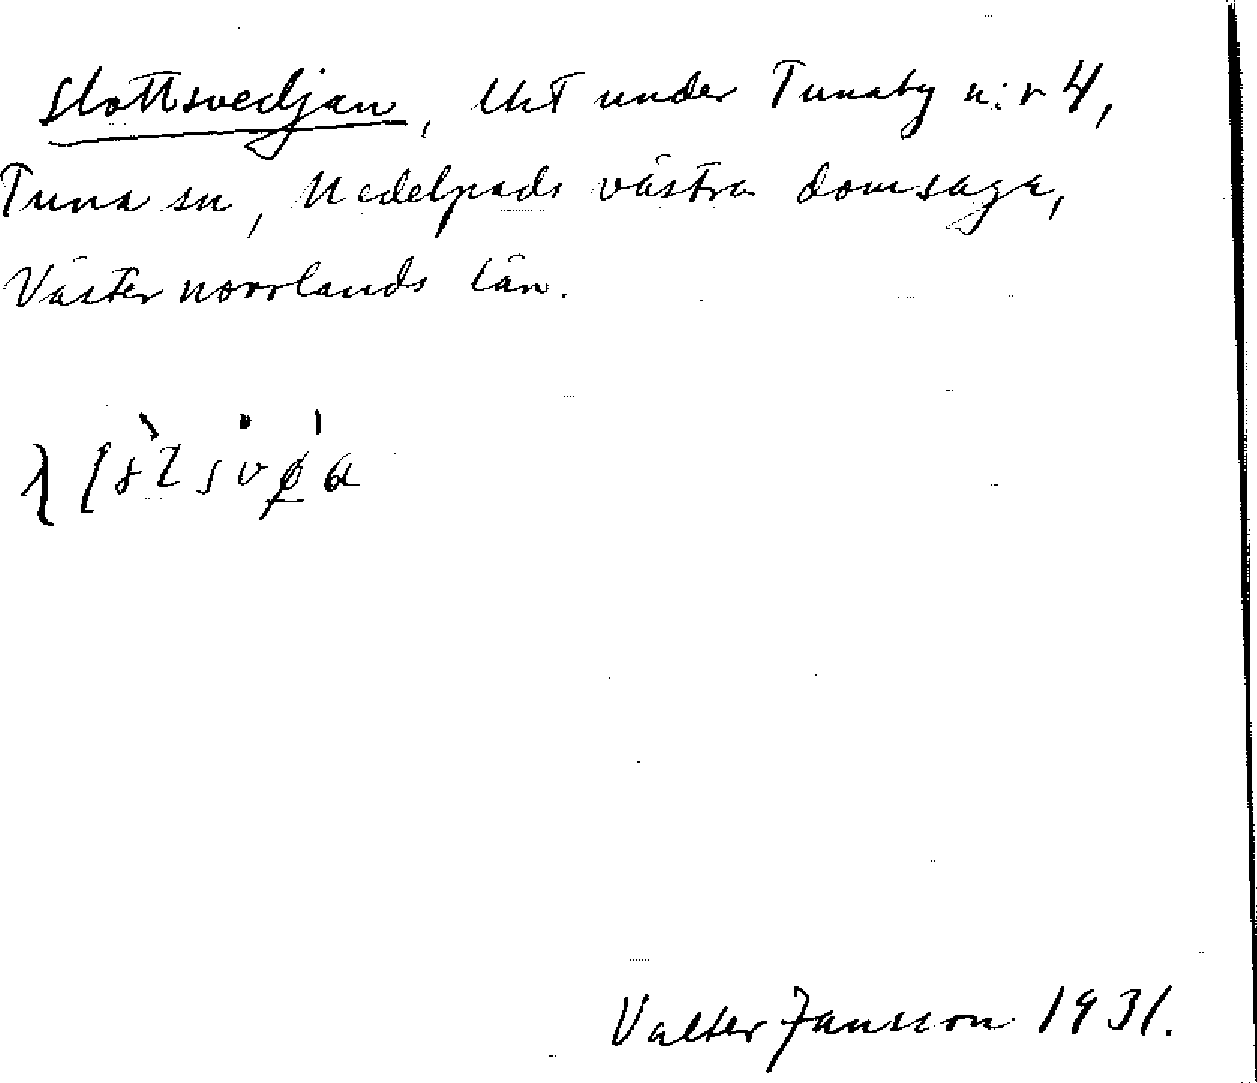 Slottsvedjan, Uht under Tunaby n:r 4,
Tuna sn, Medelpads västra domsaga,
Västernorrlands län.
Valter Jansson 1931.